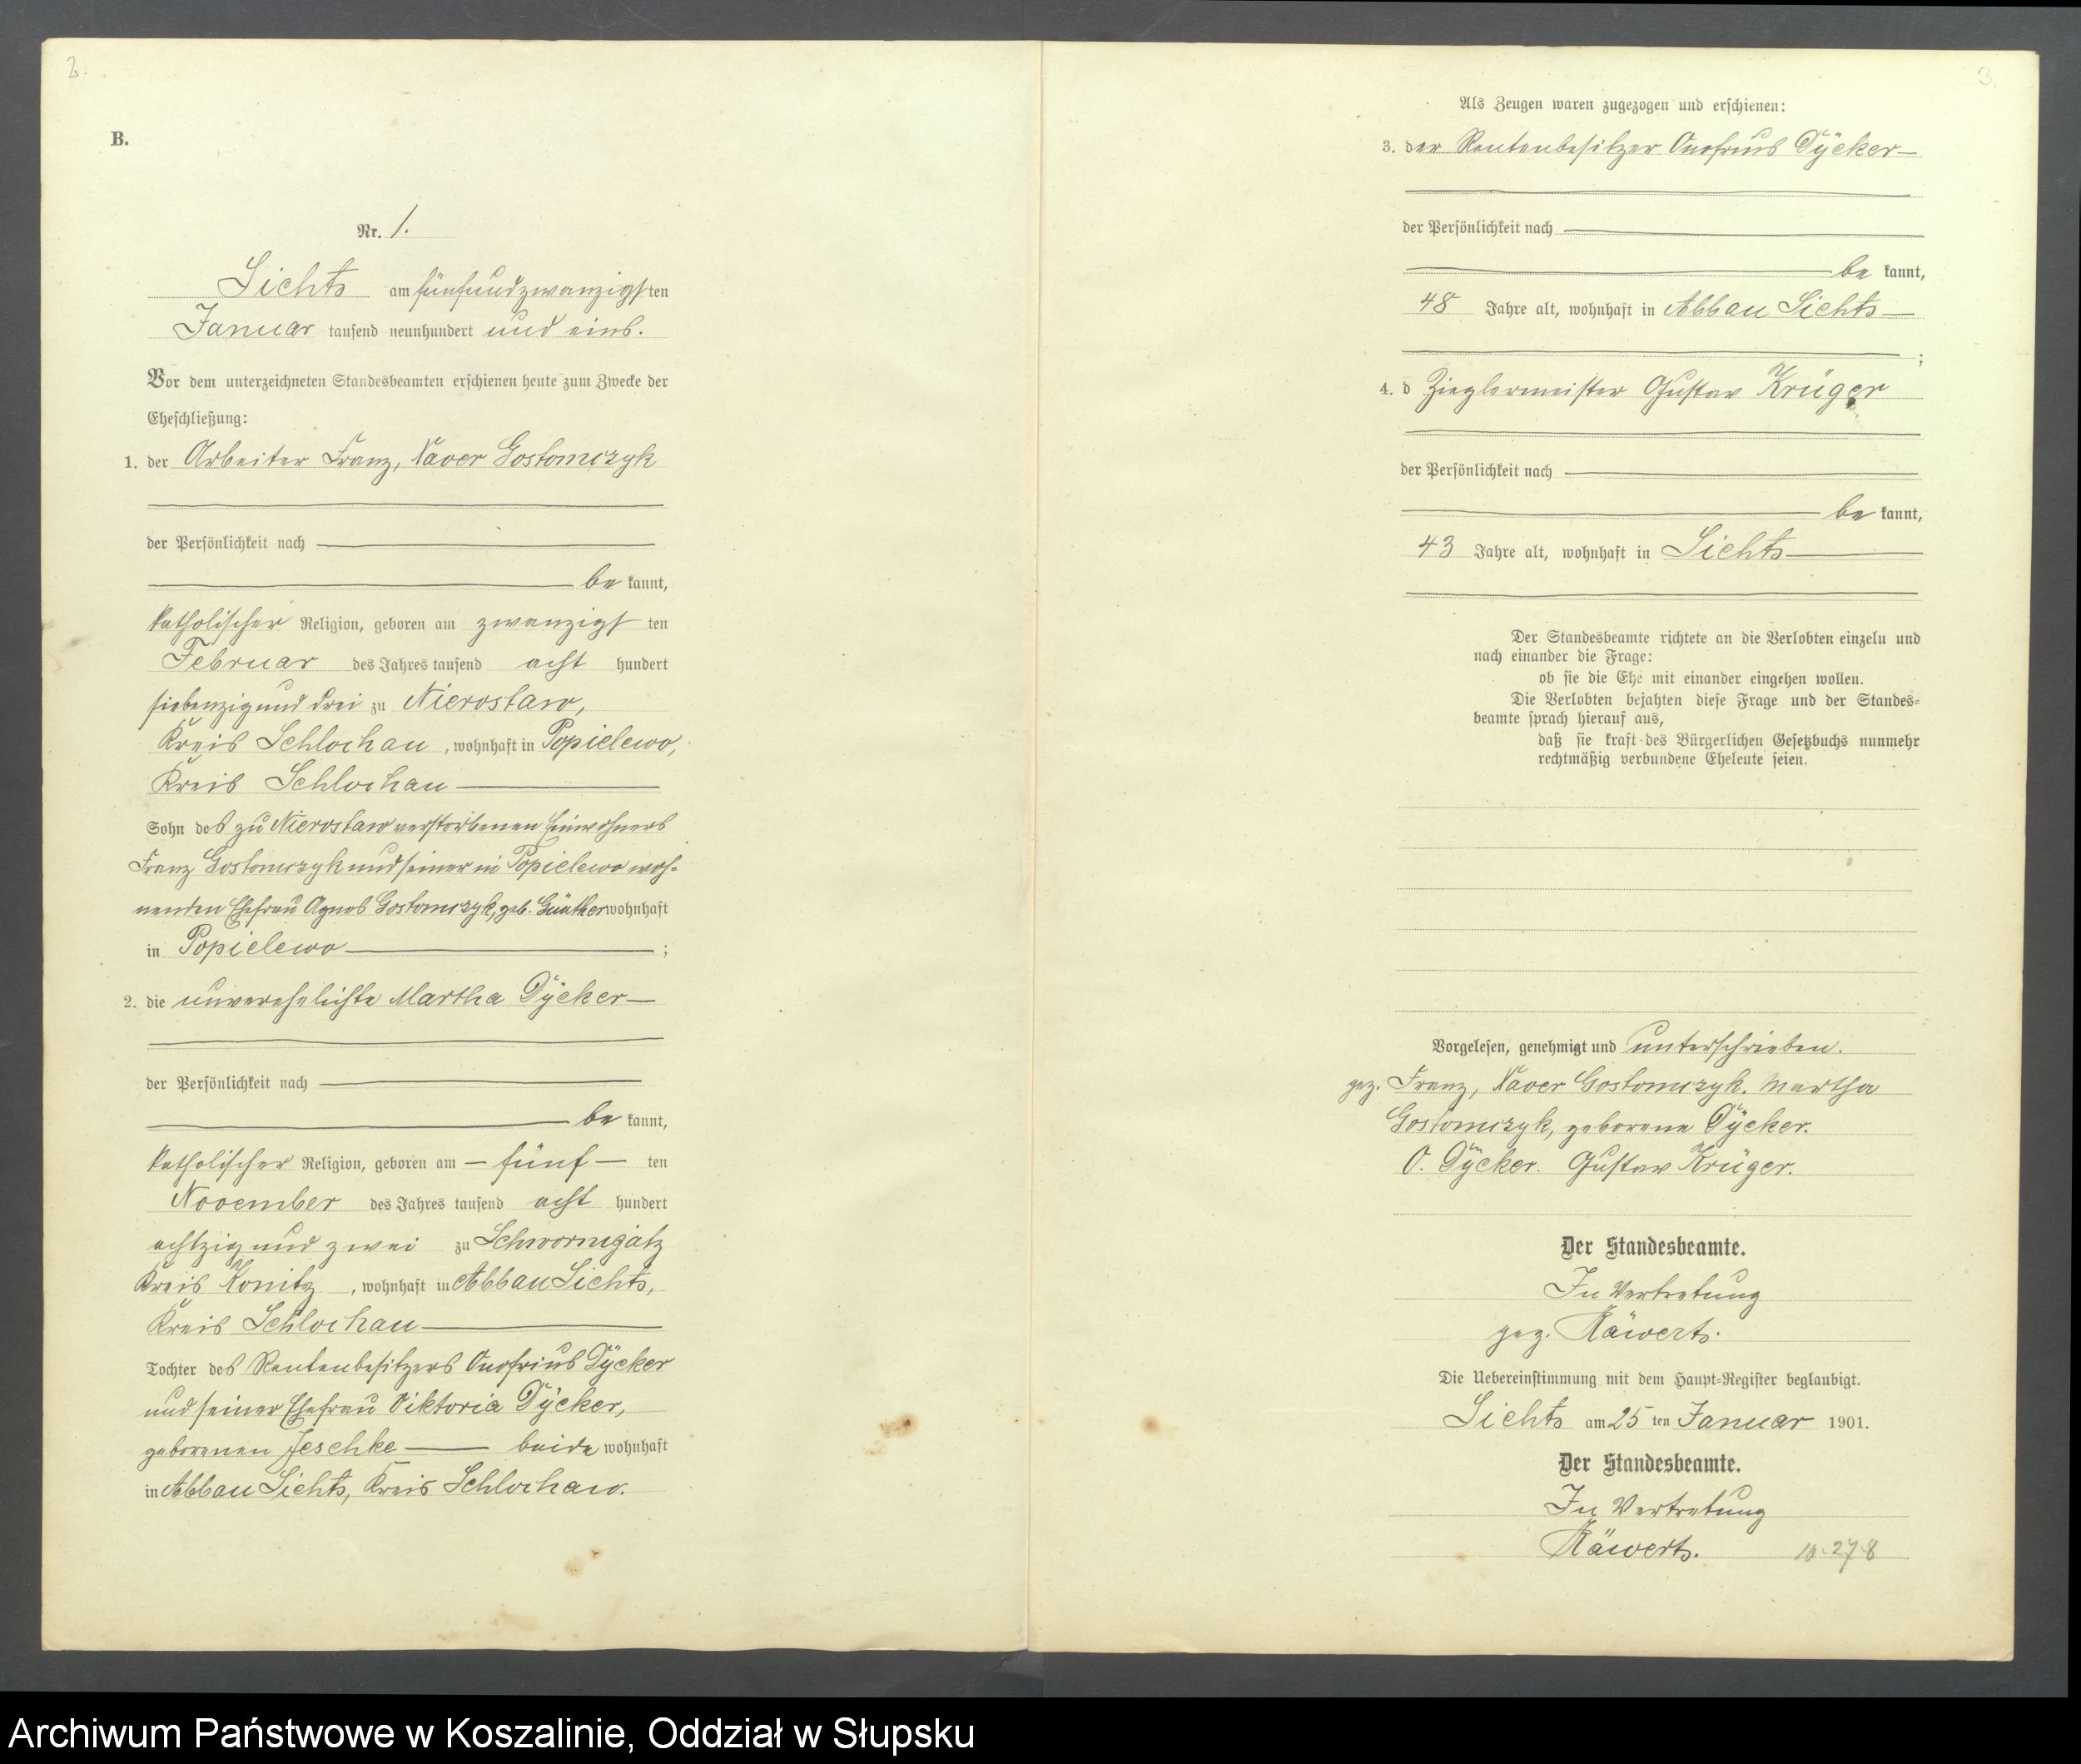 2.
B.
Nr. 1.
Lichts am fünfundzwanzigsten
Januar tausend neunhundert und eins.
Vor dem unterzeichneten Standesbeamten erschienen heute zum Zwecke der
Eheschließung:
1. der Arbeiter Franz, Xaver Gostomczyk
der Persönlichkeit nach
be kannt,
katholischer Religion, geboren am zwanzigsten
Februar des Jahres tausend acht hundert
siebenzig und drei zu Nierostaw,
Kreis Schlochau, wohnhaft in Popielewo,
Kreis Schlochau
Sohn des zu Nierostaw verstorbenen Einwohners
Franz Gostomczyk und seiner in Popielewo woh-
nenden Ehefrau Agnes Gostomczyk, geb. Günther wohnhaft
in Popielewo ;
2. die unverehelichte Martha Dÿcker
der Persönlichkeit nach
be kannt,
katholischer Religion, geboren am – fünf – ten
November des Jahres tausend acht hundert
achtzig und zwei zu Schwornigatz
Kreis Konitz, wohnhaft in Abbau Lichts,
Kreis Schlochau
Tochter des Rentenbesitzers Onofrius Dÿcker
und seiner Ehefrau Viktoria Dÿcker,
geborenen Jeschke — beide wohnhaft
in Abbau Lichts, Kreis Schlochau.
3.
Als Zeugen waren zugezogen und erschienen:
3. der Rentenbesitzer Onofrius Dÿcker
der Persönlichkeit nach
be kannt,
48 Jahre alt, wohnhaft in Abbau Lichts
;
4. d Zieglermeister Gustav Krüger
der Persönlichkeit nach
be kannt,
43 Jahre alt, wohnhaft in Lichts
Der Standesbeamte richtete an die Verlobten einzeln und
nach einander die Frage:
ob sie die Ehe mit einander eingehen wollen.
Die Verlobten bejahten diese Frage und der Standes-
beamte sprach hierauf aus,
daß sie kraft des Bürgerlichen Gesetzbuchs nunmehr
rechtmäßig verbundene Eheleute seien.
Vorgelesen, genehmigt und unterschrieben.
gez. Franz, Xaver Gostomczyk. Martha
Gostomczyk, geborene Dÿcker.
O. Dÿcker. Gustav Krüger.
Der Standesbeamte.
In Vertretung
gez. Käwerts.
Die Uebereinstimmung mit dem Haupt-Register beglaubigt.
Lichts am 25 ten Januar 1901.
Der Standesbeamte.
In Vertretung
Käwerts.
Archiwum Państwowe w Koszalinie, Oddział w Słupsku